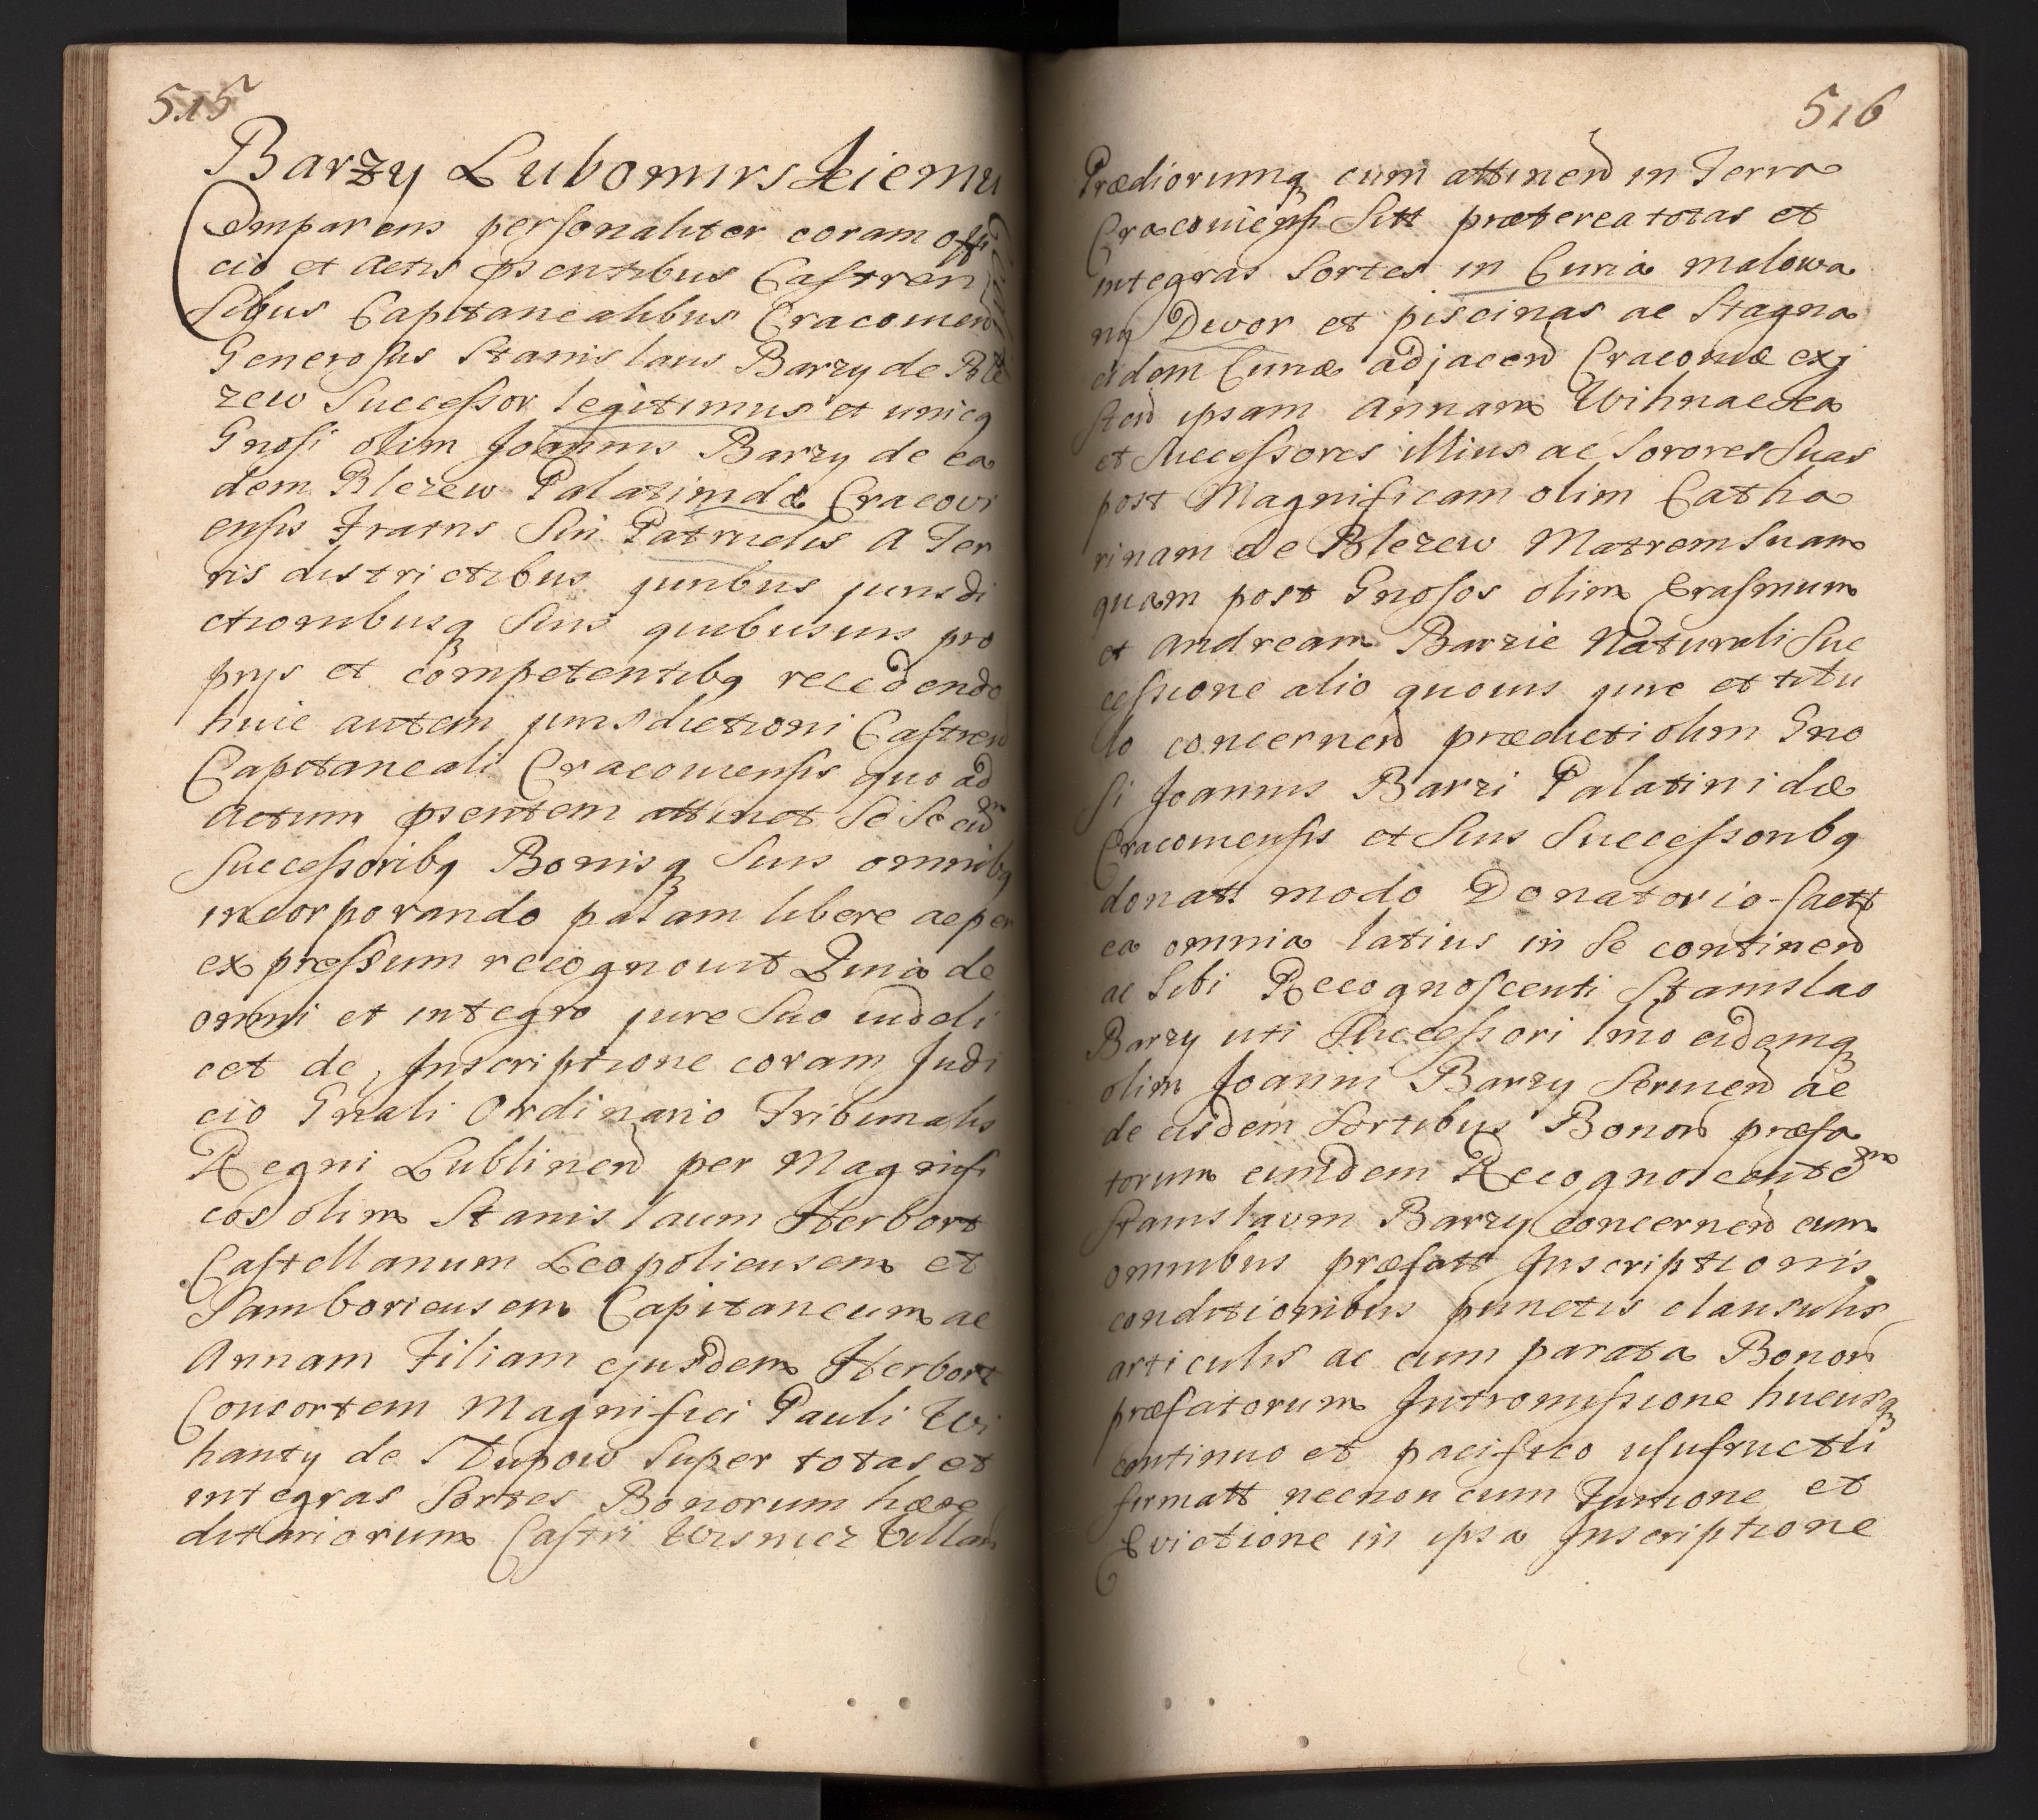 515
Barzy Lubomirskiemu
Comparens personaliter coram offi
cio et Actis psentibus Castren
sibus Capitanealibus Cracovien
Generosus Stanislaus Barzy de Ble
zew Successor legitimus et unicq
Gnosi olim Joannis Barzy de ea
dem Blezew Palatinidæ Cracovi
ensis Fratris Sui Patruelis A Ter
ris districtibus juribus jurisdi
ctionibusq Suis quibusuis pro
prijs et competentibq recedendo
huic autem jurisdictioni Castren
Capitaneali Cracouiensis quo ad
Actum psentem attinet Se Se cum
Successoribq Bonisq Suis omnibq
incorporando palam libere ac per
expressum recognouit Quia de
omni et integro jure Suo uideli
cet de Inscriptione coram Judi
cio Gnali Ordinario Tribunalis
Regni Lublinen per Magnifi
cos olim Stanislaum Herbort
Castellanum Leopoliensem et
Samboriensem Capitaneum ac
Annam Filiam ejusdem Herbort
Consortem Magnifici Pauli Wi
hanty de Stupow Super totas et
integras Sortes Bonorum hære
ditariorum Castri Wisnicz Villar
516
Prædiorumq cum attinen in Terra
Cracouiensi Sitt præterea totas et
integras Sortes in Curia malowa
ny Dwor et piscinas ac Stagna
eidem Curiæ adjacen Cracouiæ exj
sten ipsam Annam Wihnaecka
et Successores illius ac Sorores Suas
post Magnificam olim Catha
rinam de Blezew Matrem Suam
quam post Gnosos olim Erasmum
et Andream Barzie Naturali Suc
cessione alio quouis jure et titu
lo concernen prædicti olim Gno
si Joannis Barzi Palatinidæ
Cracouiensis et Suis Successoribq
donatt modo Donatorio factt
ea omnia latius in Se continen
ac Sibi Recognoscenti Stanislao
Barzy uti Successori Imo eidemq
olim Joanni Barzy Seruien ac
de eisdem Sortibus Bonor præfa
torum eundem Recognoscentem
Stanislaum Barzy concernen cum
omnibus præfatt Inscriptionis
conditionibus punctis clausulis
articulis ac cum parata Bonor
præfatorum Intromissione hucusq
continuo et pacifico usufructu
firmatt necnon cum Tuitione et
Evictione in ipsa Inscriptione